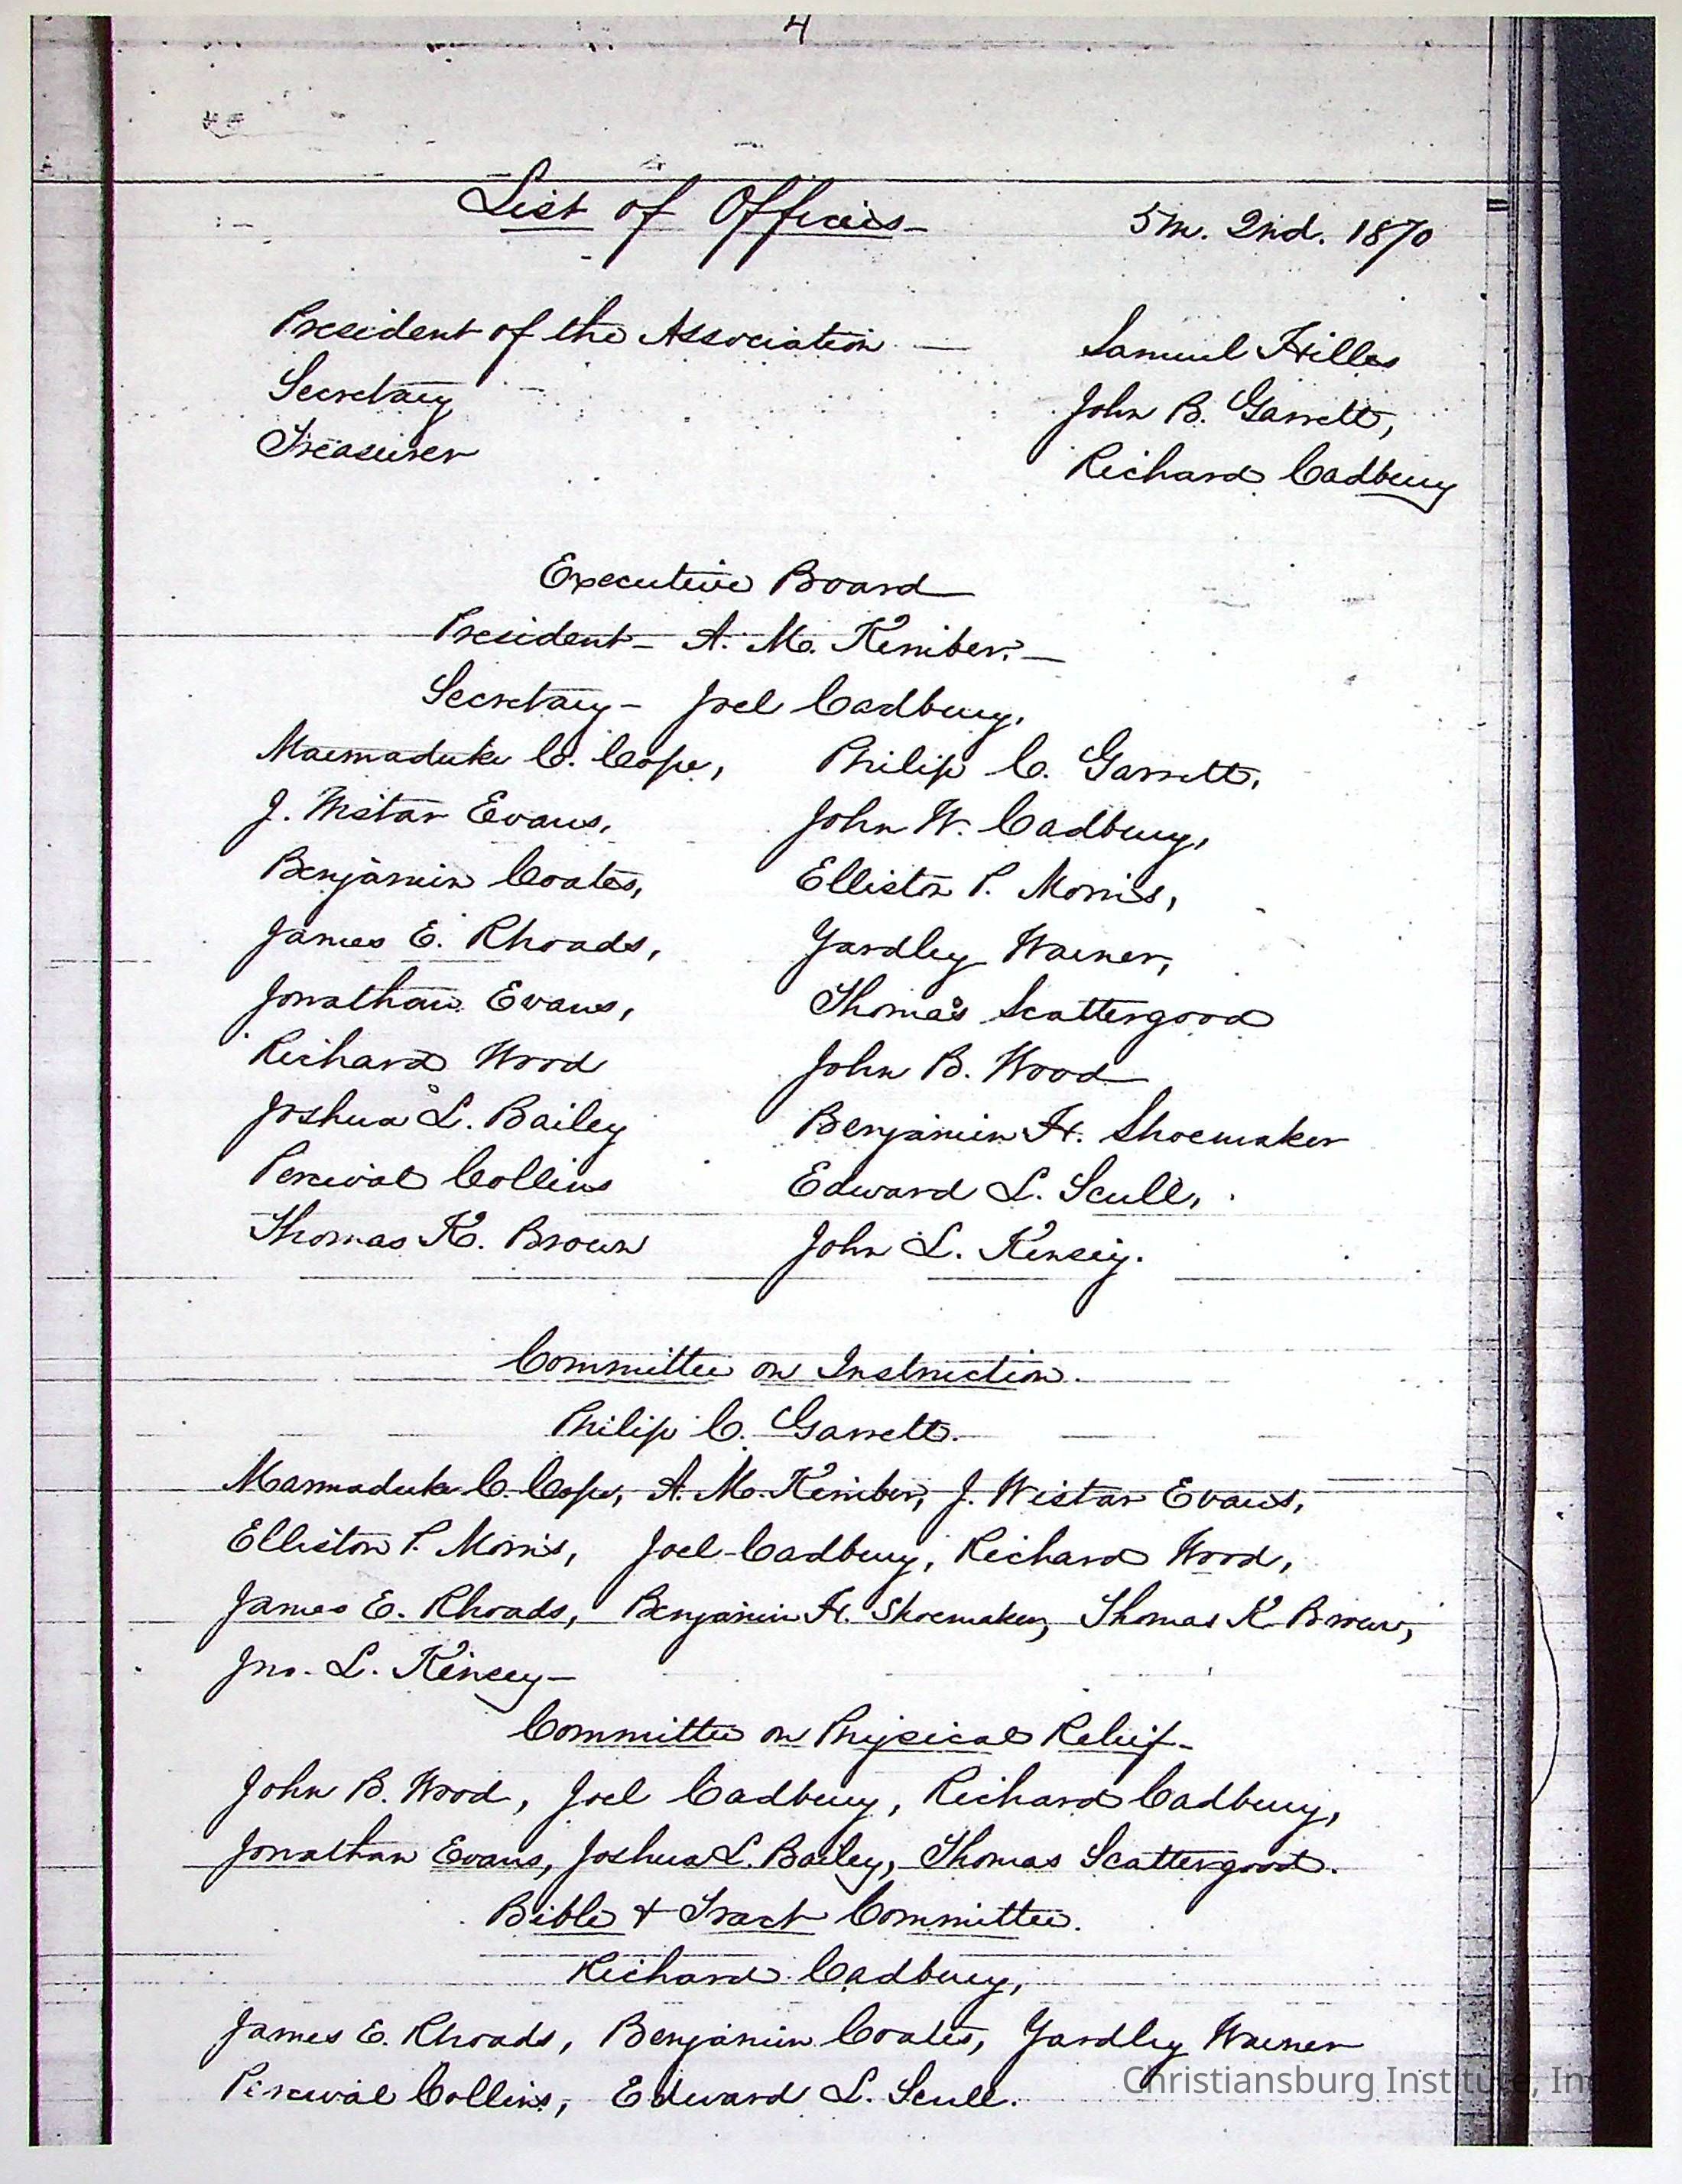 4
List of Officers - 5 m. 2nd. 1870
President of the Association — Samuel Hilles
Secretary John B. Garrett,
Treasurer Richard Cadbury
Executive Board
President - A. M. Kimber. -
Secretary - Joel Cadbury,
Marmaduke C. Cope, Philip C. Garrett,
J. Wistar Evans, John W. Cadbury,
Benjamin Coates, Elliston P. Morris,
James E. Rhoads, Yardley Warner,
Jonathan Evans, Thomas Scattergood
Richard Wood John B. Wood
Joshua L. Bailey Benjamin H. Shoemaker
Percival Collins Edward L. Scull,
Thomas K. Brown John L. Kensey.
Committee on Instruction.
Philip C. Garrett.
Marmaduke C. Cope, A. M. Kimber, J. Wistar Evans,
Elliston P. Morris, Joel Cadbury, Richard Wood,
James E. Rhoads, Benjamin H. Shoemaker, Thomas K Brown,
Jno. L. Kincey -
Committee on Physical Relief -
John B. Wood, Joel Cadbury, Richard Cadbury,
Jonathan Evans, Joshua L. Bailey, Thomas Scattergood.
Bible & Tract Committee.
Richard Cadbury,
James E. Rhoads, Benjamin Coates, Yardley Warner
Percival Collins, Edward L. Scull.
Christiansburg Institute, Inc